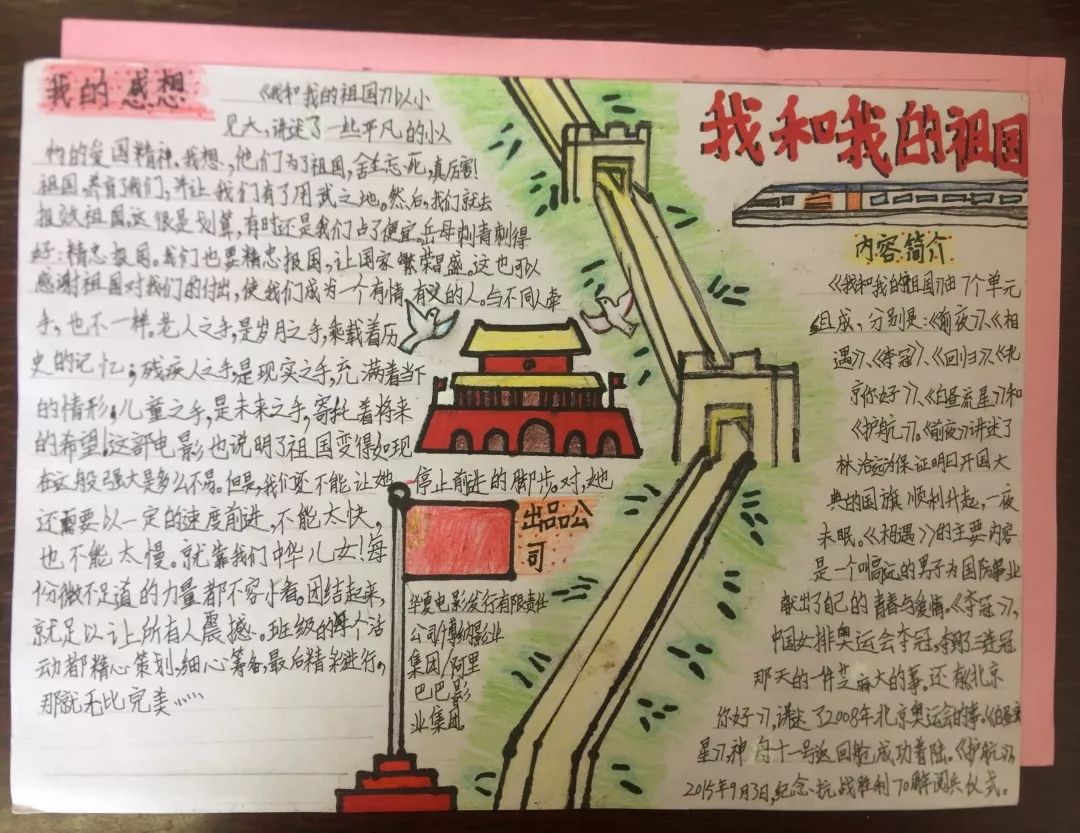 我的感想
《我和我的祖国》以小
见大,讲述了一些平凡的小人
物的爱国精神。我想,他们为了祖国,舍生忘死,真厉害!
祖国养育了我们,并让我们有了用武之地。然后,我们就去
报效祖国。这很是划算,有时还是我们占了便宜。岳母刺青刺得
好:精忠报国。我们也要精忠报国,让国家繁荣昌盛。这也可以
感谢祖国对我们的付出,使我们成为一个有情、有义的人。与不同人牵
手,也不一样。老人之手,是岁月之手,乘载着历
史的记忆;残疾人之手,是现实之手,充满着当下
的情形;儿童之手,是未来之手,寄托着将来
的希望!这部电影也说明了祖国变得如现
在这般强大是多么不易。但是,我们还不能让她停止前进的脚步。对,她
还需要以一定的速度前进,不能太快,
也不能太慢。就靠我们中华儿女!每
份微不足道的力量都不容小看。团结起来,
就足以让所有人震撼。班级的每个活
动都精心策划,细心筹备,最后精彩进行,
那就无比完美……
出品公
司
华夏电影发行有限责任
公司/博纳影业
集团/阿里
巴巴影
业集团
我和我的祖国
内容简介
《我和我的祖国》由7个单元
组成,分别是:《前夜》、《相
遇》、《夺冠》、《回归》、《北
京你好》、《白昼流星》和
《护航》。《前夜》讲述了
林治远为保证明日开国大
典的国旗顺利升起,一夜
未眠。《相遇》的主要内容
是一个叫高远的男子为国防事业
献出了自己的青春与爱情。《夺冠》,
中国女排奥运会夺冠,三连冠
那天的一件芝麻大的事。还有《北京
你好》,讲述了2008年北京奥运会的事。《白昼流
星》,神舟十一号返回舱成功着陆。《护航》,
2015年9月3日,纪念抗战胜利70周年阅兵仪式。